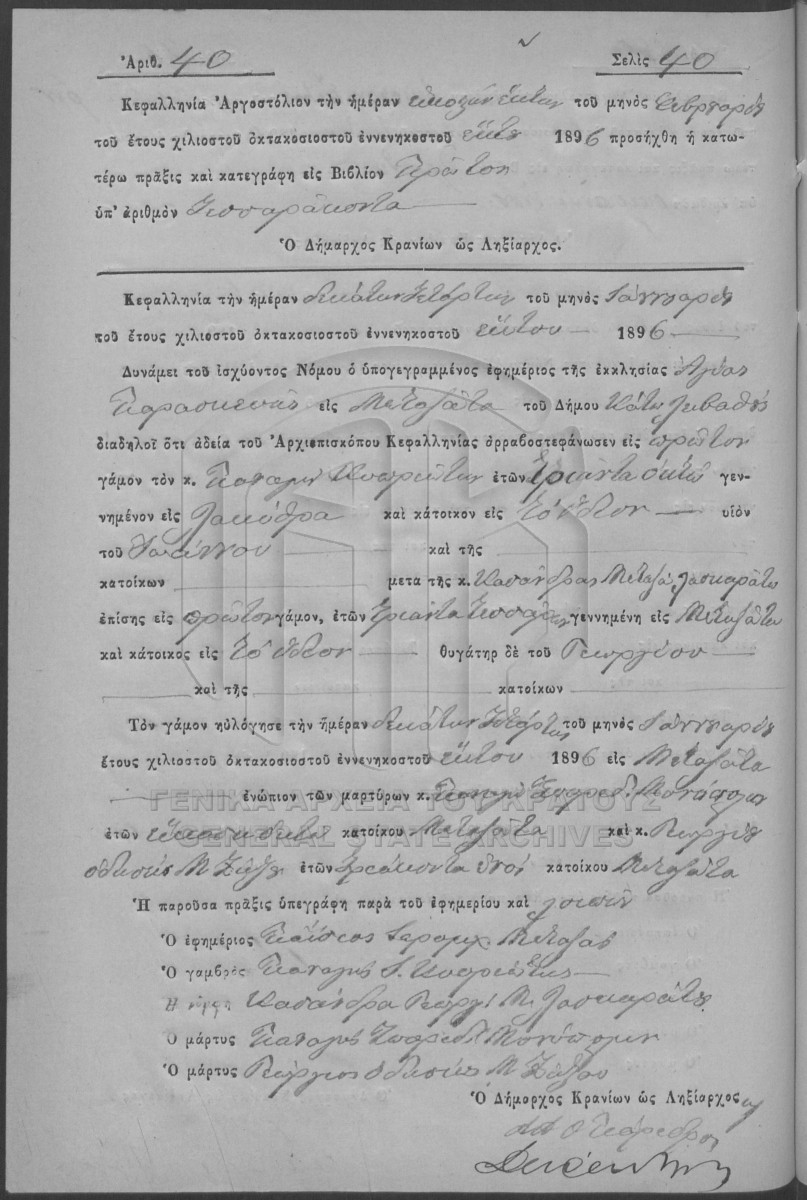 Ἀριθ. 40 Σελὶς 40
Κεφαλληνία Ἀργοστόλιον τὴν ἡμέραν εἰκοστὴν ἕκτην τοῦ μηνὸς Φεβρουαρίου
τοῦ ἔτους χιλιοστοῦ ὀκτακοσιοστοῦ ἐννενηκοστοῦ ἕκτου 1896 προσήχθη ἡ κατω-
τέρω πρᾶξις καὶ κατεγράφη εἰς Βιβλίον Πρῶτον
ὑπ' ἀριθμὸν Τεσσαράκοντα
Ὁ Δήμαρχος Κρανίων ὡς Ληξίαρχος.
Κεφαλληνία τὴν ἡμέραν δεκάτην τετάρτην τοῦ μηνὸς Ἰαννουαρίου
τοῦ ἔτους χιλιοστοῦ ὀκτακοσιοστοῦ ἐννενηκοστοῦ ἕκτου 1896
Δυνάμει τοῦ ἰσχύοντος Νόμου ὁ ὑπογεγραμμένος ἐφημέριος τῆς ἐκκλησίας Ἁγίας
Παρασκευῆς εἰς Μεταξάτα τοῦ Δήμου Κάτω Λιβαθοῦς
διαδηλοῖ ὅτι ἀδεία τοῦ Ἀρχιεπισκόπου Κεφαλληνίας ἀρραβοστεφάνωσεν εἰς πρῶτον
γάμον τὸν κ. Παναγὴν Κουπριώτην ἐτῶν τριάντα ὀκτὼ γεν-
νημένον εἰς Λακύθρα καὶ κάτοικον εἰς τὸ ἴδιον υἱὸν
τοῦ Ἰωάννου καὶ τῆς
κατοίκων μετὰ τῆς κ. Κασάνδρας Μεταξᾶ Λασκαράτου
ἐπίσης εἰς πρῶτον γάμον, ἐτῶν τριάντα τεσσάρων γεννημένη εἰς Μεταξάτα
καὶ κάτοικος εἰς τὸ ἴδιον θυγάτηρ δὲ τοῦ Γεωργίου
καὶ τῆς κατοίκων
Τὸν γάμον ηὐλόγησε τὴν ἡμέραν δεκάτην τετάρτην τοῦ μηνὸς Ἰαννουαρίου
ἔτους χιλιοστοῦ ὀκτακοσιοστοῦ ἐννενηκοστοῦ ἕκτου 1896 εἰς Μεταξάτα
ἐνώπιον τῶν μαρτύρων κ. Παναγὴ
ΓΕΝΙΚΑ ΑΡΧΕΙΑ ΤΟΥ ΚΡΑΤΟΥΣ
GENERAL STATE ARCHIVES
ἐτῶν κατοίκου Μεταξάτα καὶ κ. Γεωργίου
ἐτῶν τριάκοντα κατοίκου Μεταξάτα
Ἡ παροῦσα πρᾶξις ὑπεγράφη παρὰ τοῦ ἐφημερίου καὶ λοιπῶν
Ὁ ἐφημέριος Ἱερομ. Μεταξᾶς
Ὁ γαμβρὸς Παναγὴς Ι. Κουπριώτης
Ἡ νύμφη Κασάνδρα Γεωργ. Μ. Λασκαράτου
Ὁ μάρτυς Παναγὴς
Ὁ μάρτυς Γεώργιος
Ὁ Δήμαρχος Κρανίων ὡς Ληξίαρχος